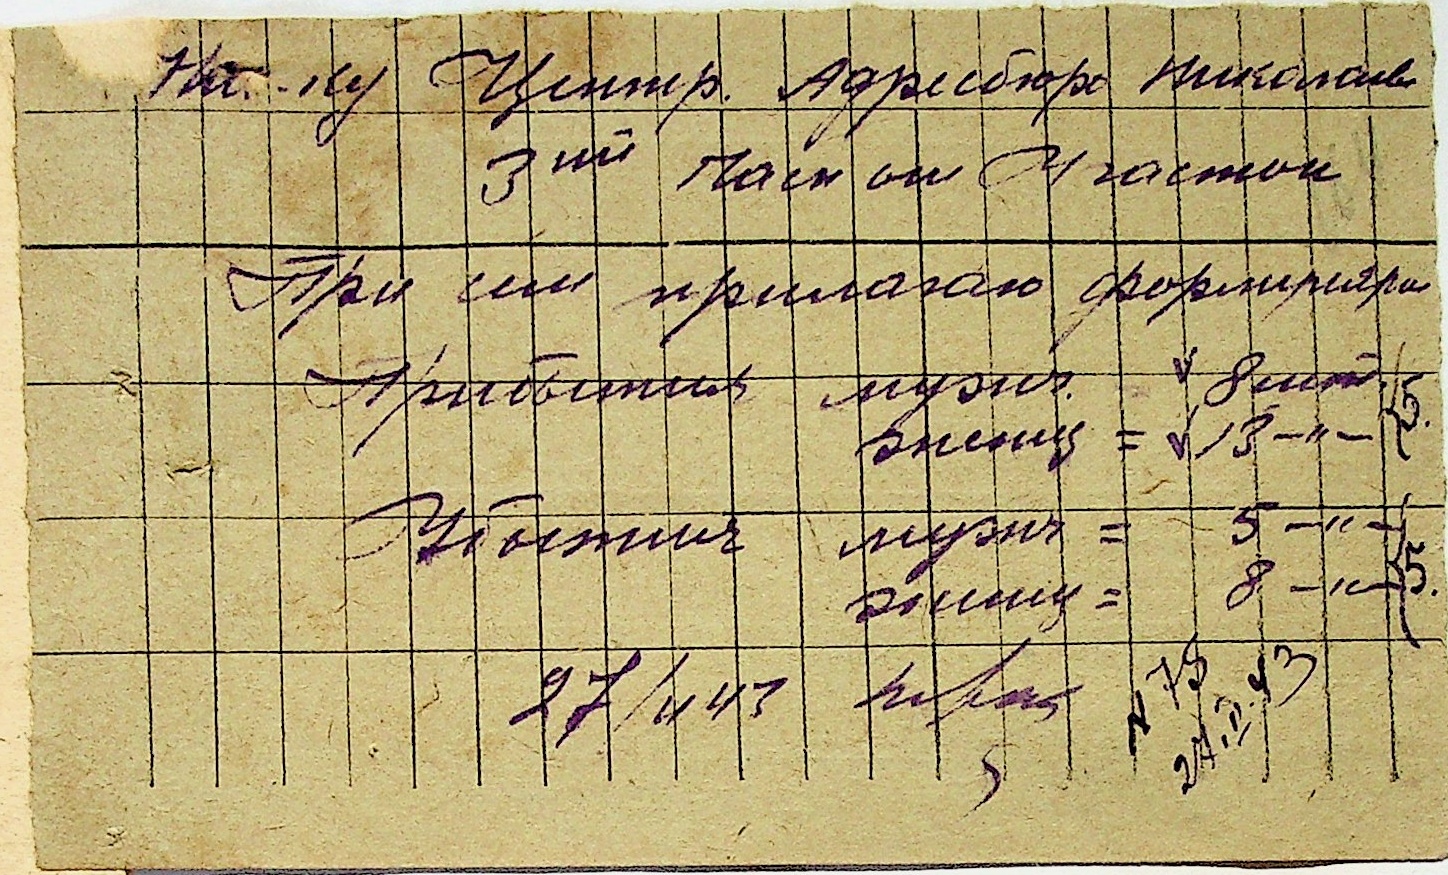 Нач-ку Центр. Адресбюро Николаев
3ий Паспортн Участок
При сем прилагаю формуляры
Прибытия мужч. 8 шт.
женщ = 13 -"-
Убытия мужч = 5 -"-
женщ = 8 -"-
27/II 43
N 73
27.II.43